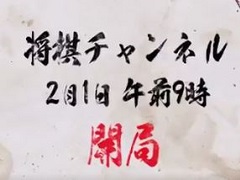 将棋チャンネル
2月1日 午前9時
開局